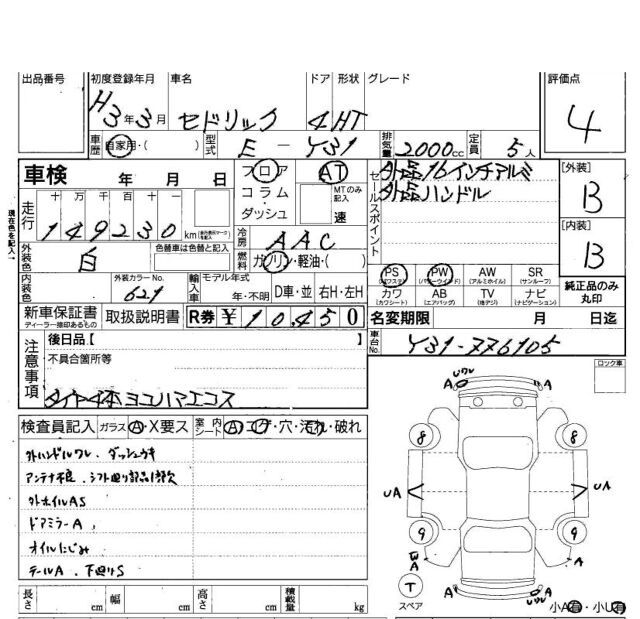 出品番号 初度登録年月 車名 ドア 形状 グレード 評価点
H3年3月 セドリック 4HT 4
車歴 自家用・( ) 型式 E-Y31 排気量 2000cc 定員 5人
車検 年 月 日 フロア AT 外品16インチアルミ [外装]
コラム MTのみ記入 外品ハンドル B
ダッシュ 速 セールスポイント
走行 十万 万 千 百 十 一
149230 km
現在色を記入→
冷房 AAC [内装]
外装色 白 色替車は色替と記入 燃料 ガソリン・軽油・( ) B
内装色 外装カラーNo. 621 輸入車 モデル年式 年・不明 D車・並 右H・左H
PS (パワステ) PW (パワーウインド) AW (アルミホイル) SR (サンルーフ)
カワ (カワシート) AB (エアバッグ) TV (純正) ナビ (ナビゲーション)
純正品のみ丸印
新車保証書 ディーラー捺印あるもの 取扱説明書 R券 ¥10,450 名変期限 月 日迄
注意事項 後日品【 】 車台No. Y31-776105
不具合箇所等 ロック車
タイヤ4本ヨコハマエコス
検査員記入 ガラス A・X要ス 室内シート A・コゲ・穴・汚れ・破れ
外ハンドルワレ、ダッシュウキ
アンテナ不良、シフト回り部品1部欠
外ホイルAS
ドアミラーA
オイルにじみ
テールA、下回りS
A A
8 8
UA UA
9 9
A A
T
スペア
A A
長さ cm 幅 cm 高さ cm 積載量 kg
小A有・小U有